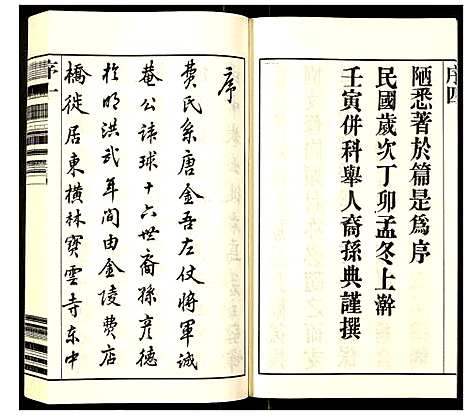 序四
陋悉著於篇是爲序
民國歲次丁卯孟冬上澣
壬寅併科舉人裔孫典謹撰
序
費氏系唐金吾左仗將軍誠
菴公諱球十六世裔孫彥德
於明洪武年間由金陵費店
橋徙居東橫林寶雲寺東中
序一